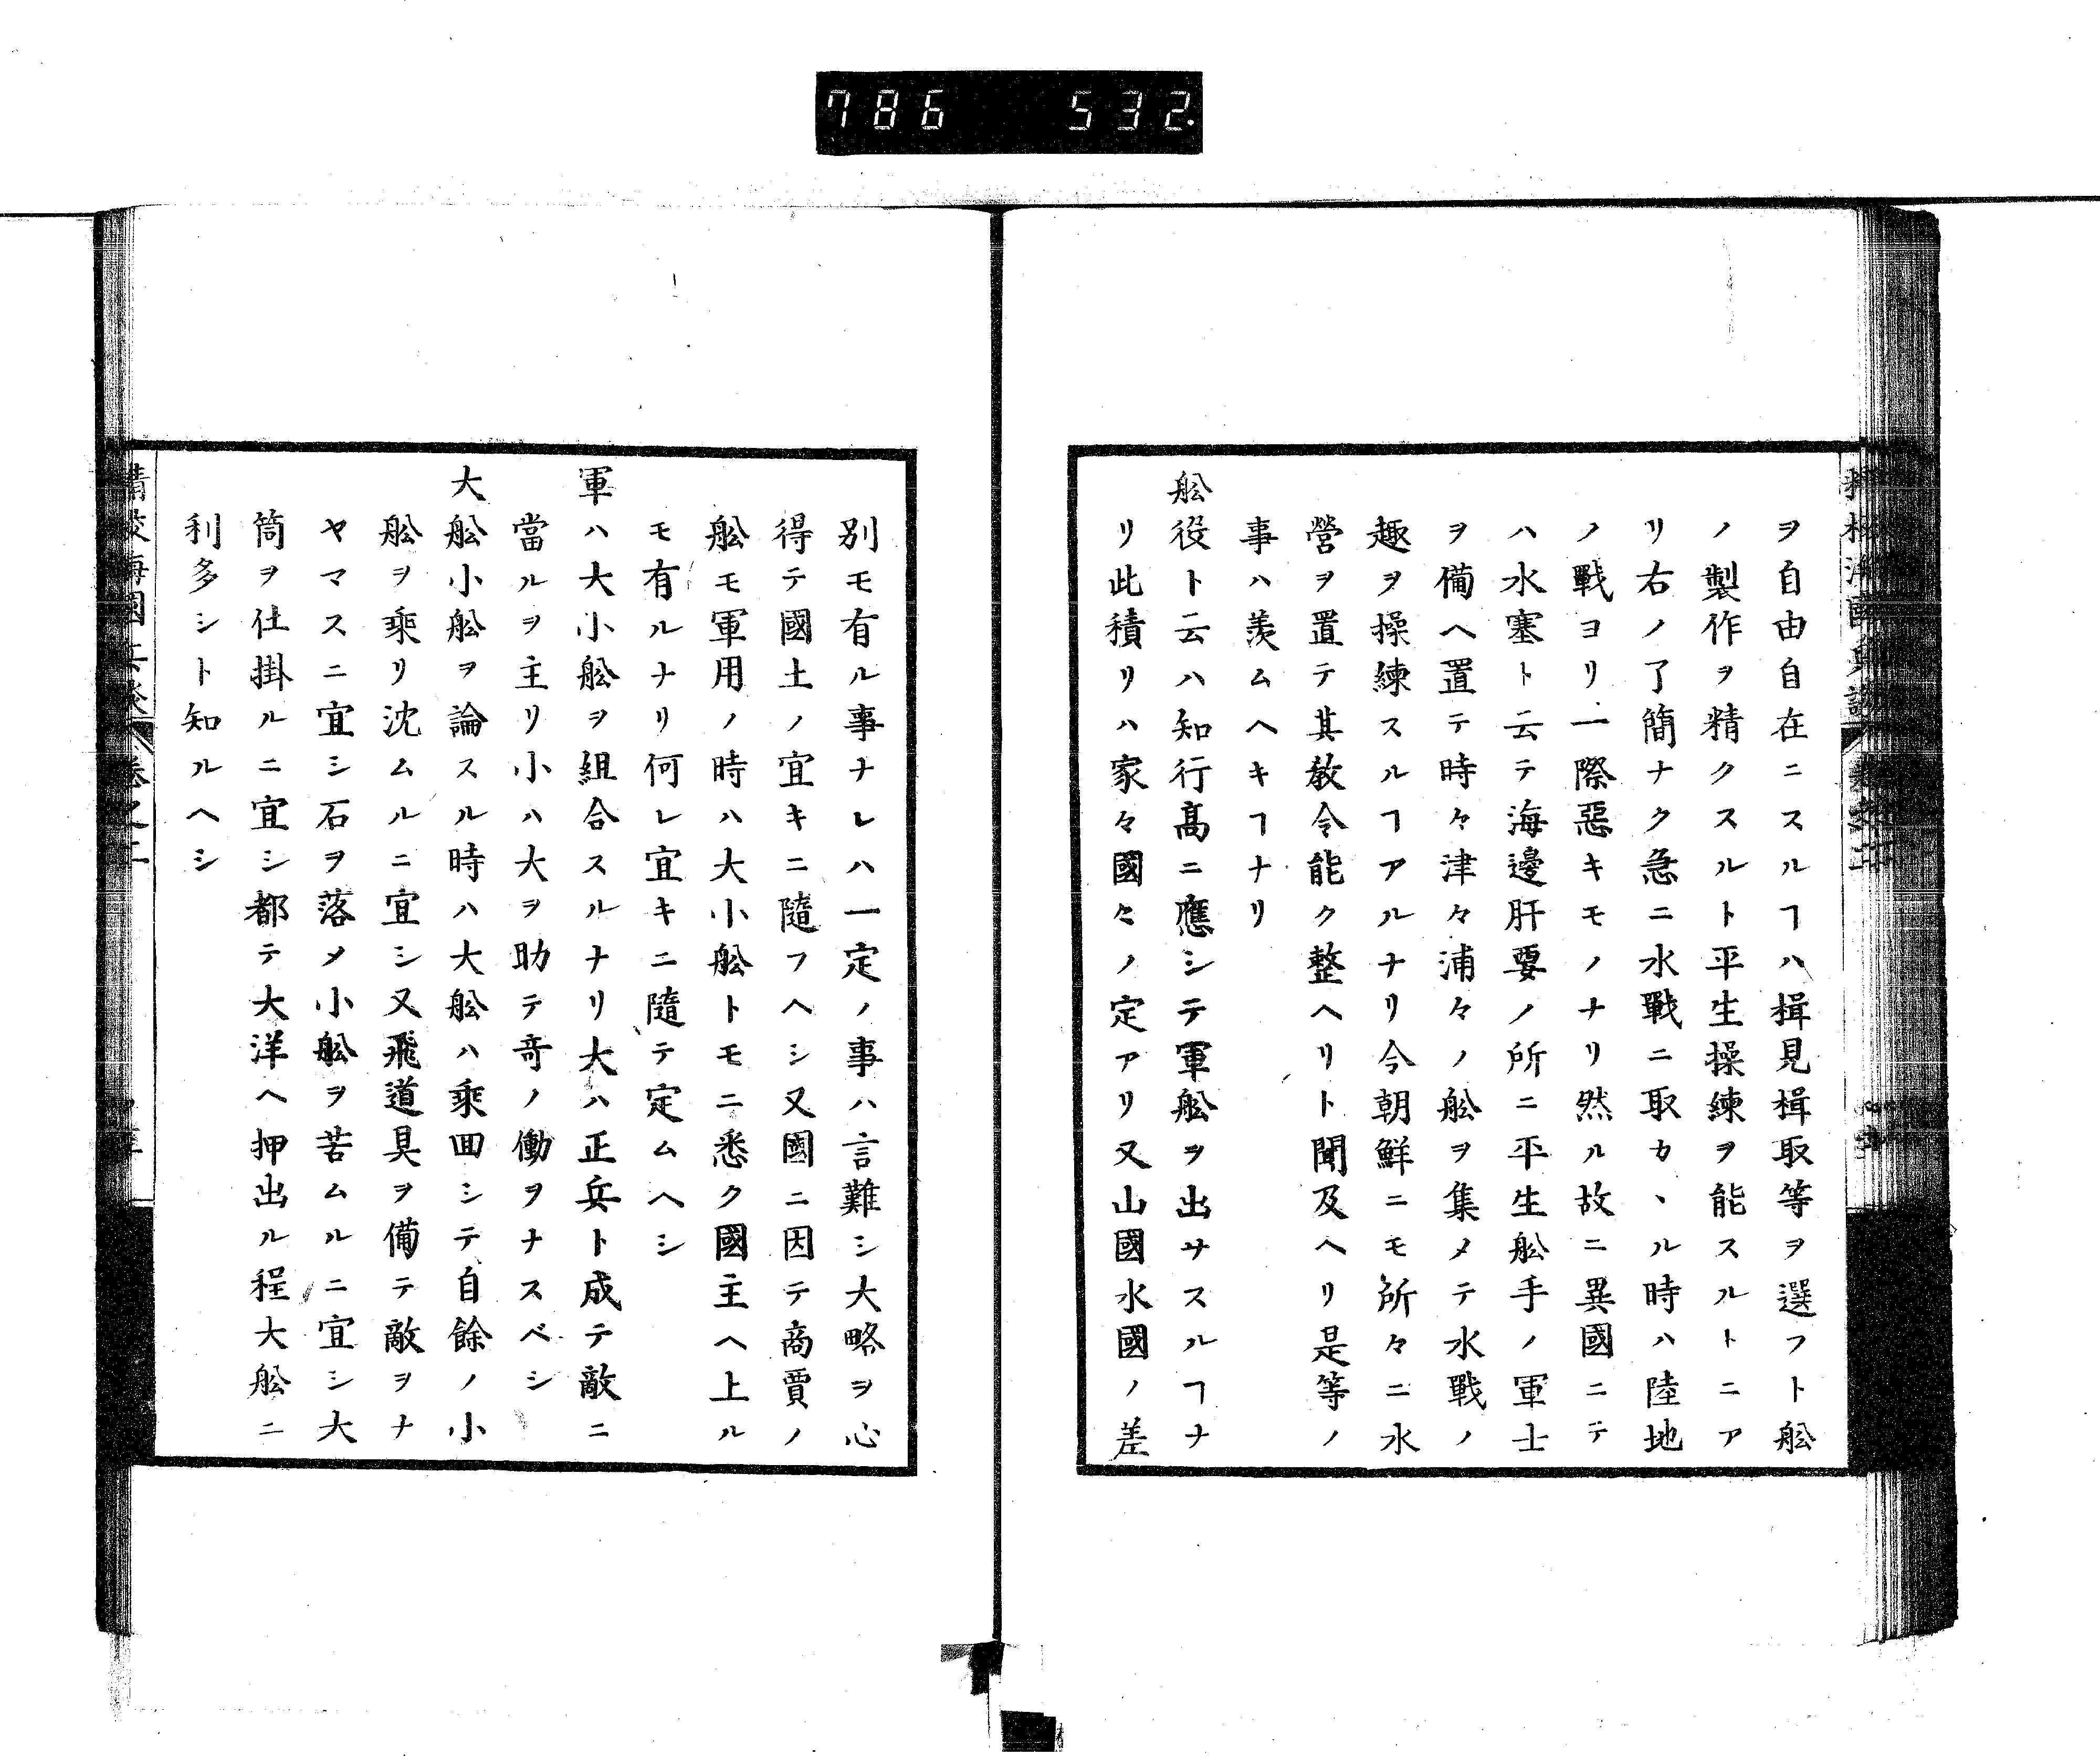 786 532.
ヲ自由自在ニスルヿハ楫見楫取等ヲ選フト舩
ノ製作ヲ精クスルト平生操練ヲ能スルトニア
リ右ノ了簡ナク急ニ水戰ニ取カヽル時ハ陸地
ノ戰ヨリ一際惡キモノナリ然ル故ニ異國ニテ
ハ水塞ト云テ海邊肝要ノ所ニ平生舩手ノ軍士
ヲ備ヘ置テ時々津々浦々ノ舩ヲ集メテ水戰ノ
趣ヲ操練スルヿアルナリ今朝鮮ニモ所々ニ水
營ヲ置テ其敎令能ク整ヘリト聞及ヘリ是等ノ
事ハ羨ムヘキヿナリ
舩役ト云ハ知行高ニ應シテ軍舩ヲ出サスルヿナ
リ此積リハ家々國々ノ定アリ又山國水國ノ差
別モ有ル事ナレハ一定ノ事ハ言難シ大略ヲ心
得テ國土ノ宜キニ隨フヘシ又國ニ因テ商賈ノ
舩モ軍用ノ時ハ大小舩トモニ悉ク國主ヘ上ル
モ有ルナリ何レ宜キニ隨テ定ムヘシ
軍ハ大小舩ヲ組合スルナリ大ハ正兵ト成テ敵ニ
當ルヲ主リ小ハ大ヲ助テ奇ノ働ヲナスベシ
大舩小舩ヲ論スル時ハ大舩ハ乘囬シテ自餘ノ小
舩ヲ乘リ沈ムルニ宜シ又飛道具ヲ備テ敵ヲナ
ヤマスニ宜シ石ヲ落メ小舩ヲ苦ムルニ宜シ大
筒ヲ仕掛ルニ宜シ都テ大洋ヘ押出ル程大舩ニ
利多シト知ルヘシ
海國兵談 卷之二